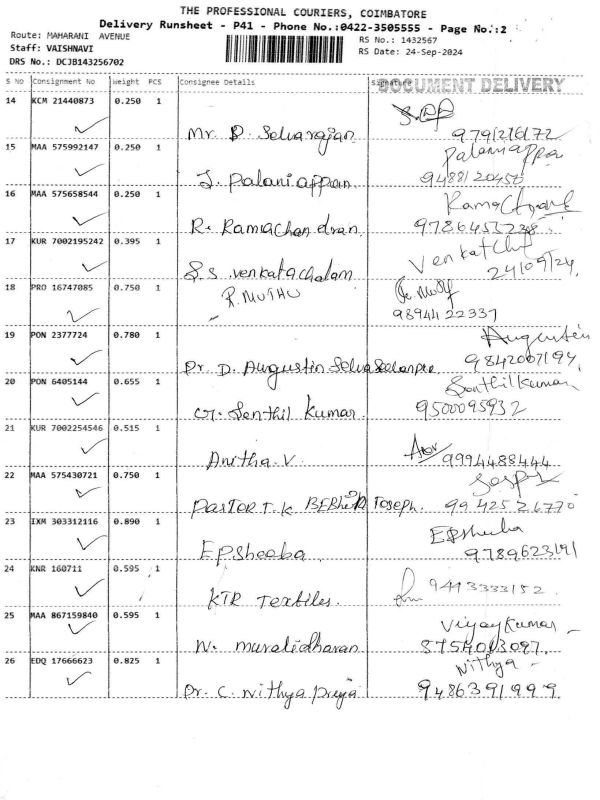 THE PROFESSIONAL COURIERS, COIMBATORE
Delivery Runsheet - P41 - Phone No.:0422-3505555 - Page No.:2
Route: MAHARANI AVENUE
RS No.: 1432567
Staff: VAISHNAVI
RS Date: 24-Sep-2024
DRS No.: DCJB143256702
S No Consignment No Weight PCS Consignee Details Signature
DOCUMENT DELIVERY
14 KCM 21440873 0.250 1
Mr. D. Selvarajan
15 MAA 575992147 0.250 1
J. Palaniappan
Palaniappan
9488120450
16 MAA 575658544 0.250 1
R. Ramachandran
17 KUR 7002195242 0.395 1
S.S. Venkatachalam
24/09/24
18 PRO 16747085 0.750 1
R. MUTHU
98944 22337
19 PON 2377724 0.780 1
Dr. D. Augustin
9842007194
20 PON 6405144 0.655 1
G. Senthil Kumar
Senthilkumar
9500095932
21 KUR 7002254546 0.515 1
Anitha.V
9994488444
22 MAA 575430721 0.750 1
Pastor T.K. Joseph.
99425 26770
23 IXM 303312116 0.890 1
EPSheeba
EPSheeba
9789623191
24 KNR 160711 0.595 1
KTR Textiles.
9443333152
25 MAA 867159840 0.595 1
N. Muralidharan
Vijaykumar
8754003097
26 EDQ 17666623 0.825 1
Dr. C. Nithya Priya
Nithya
9486391999